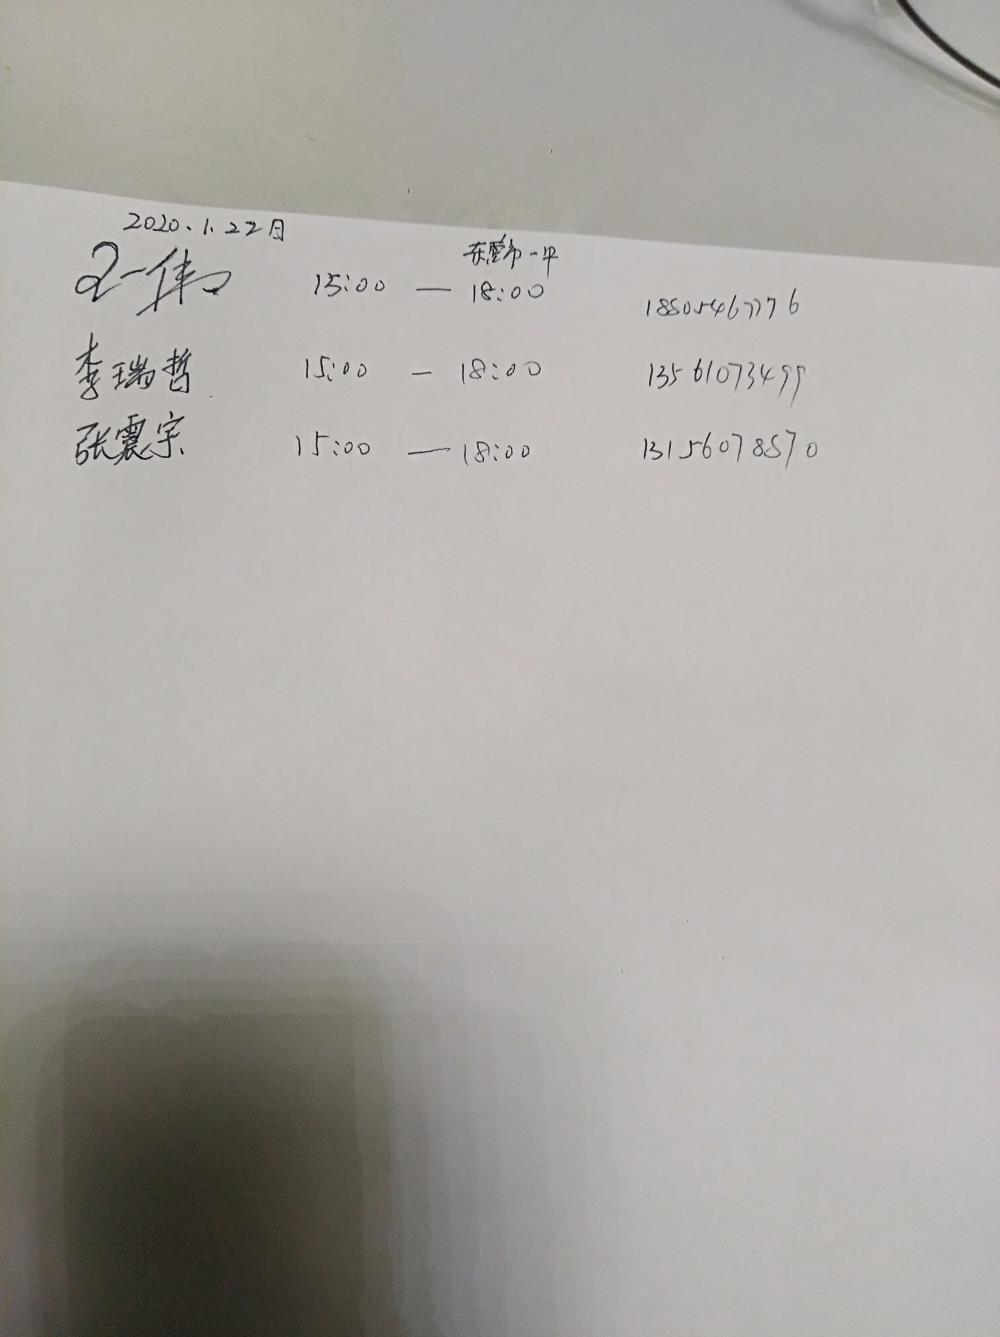 2020.1.22日
东营市一中
一伟 15:00 — 18:00 18805467776
李瑞哲 15:00 — 18:00 13561073499
张震宇 15:00 — 18:00 13156078570